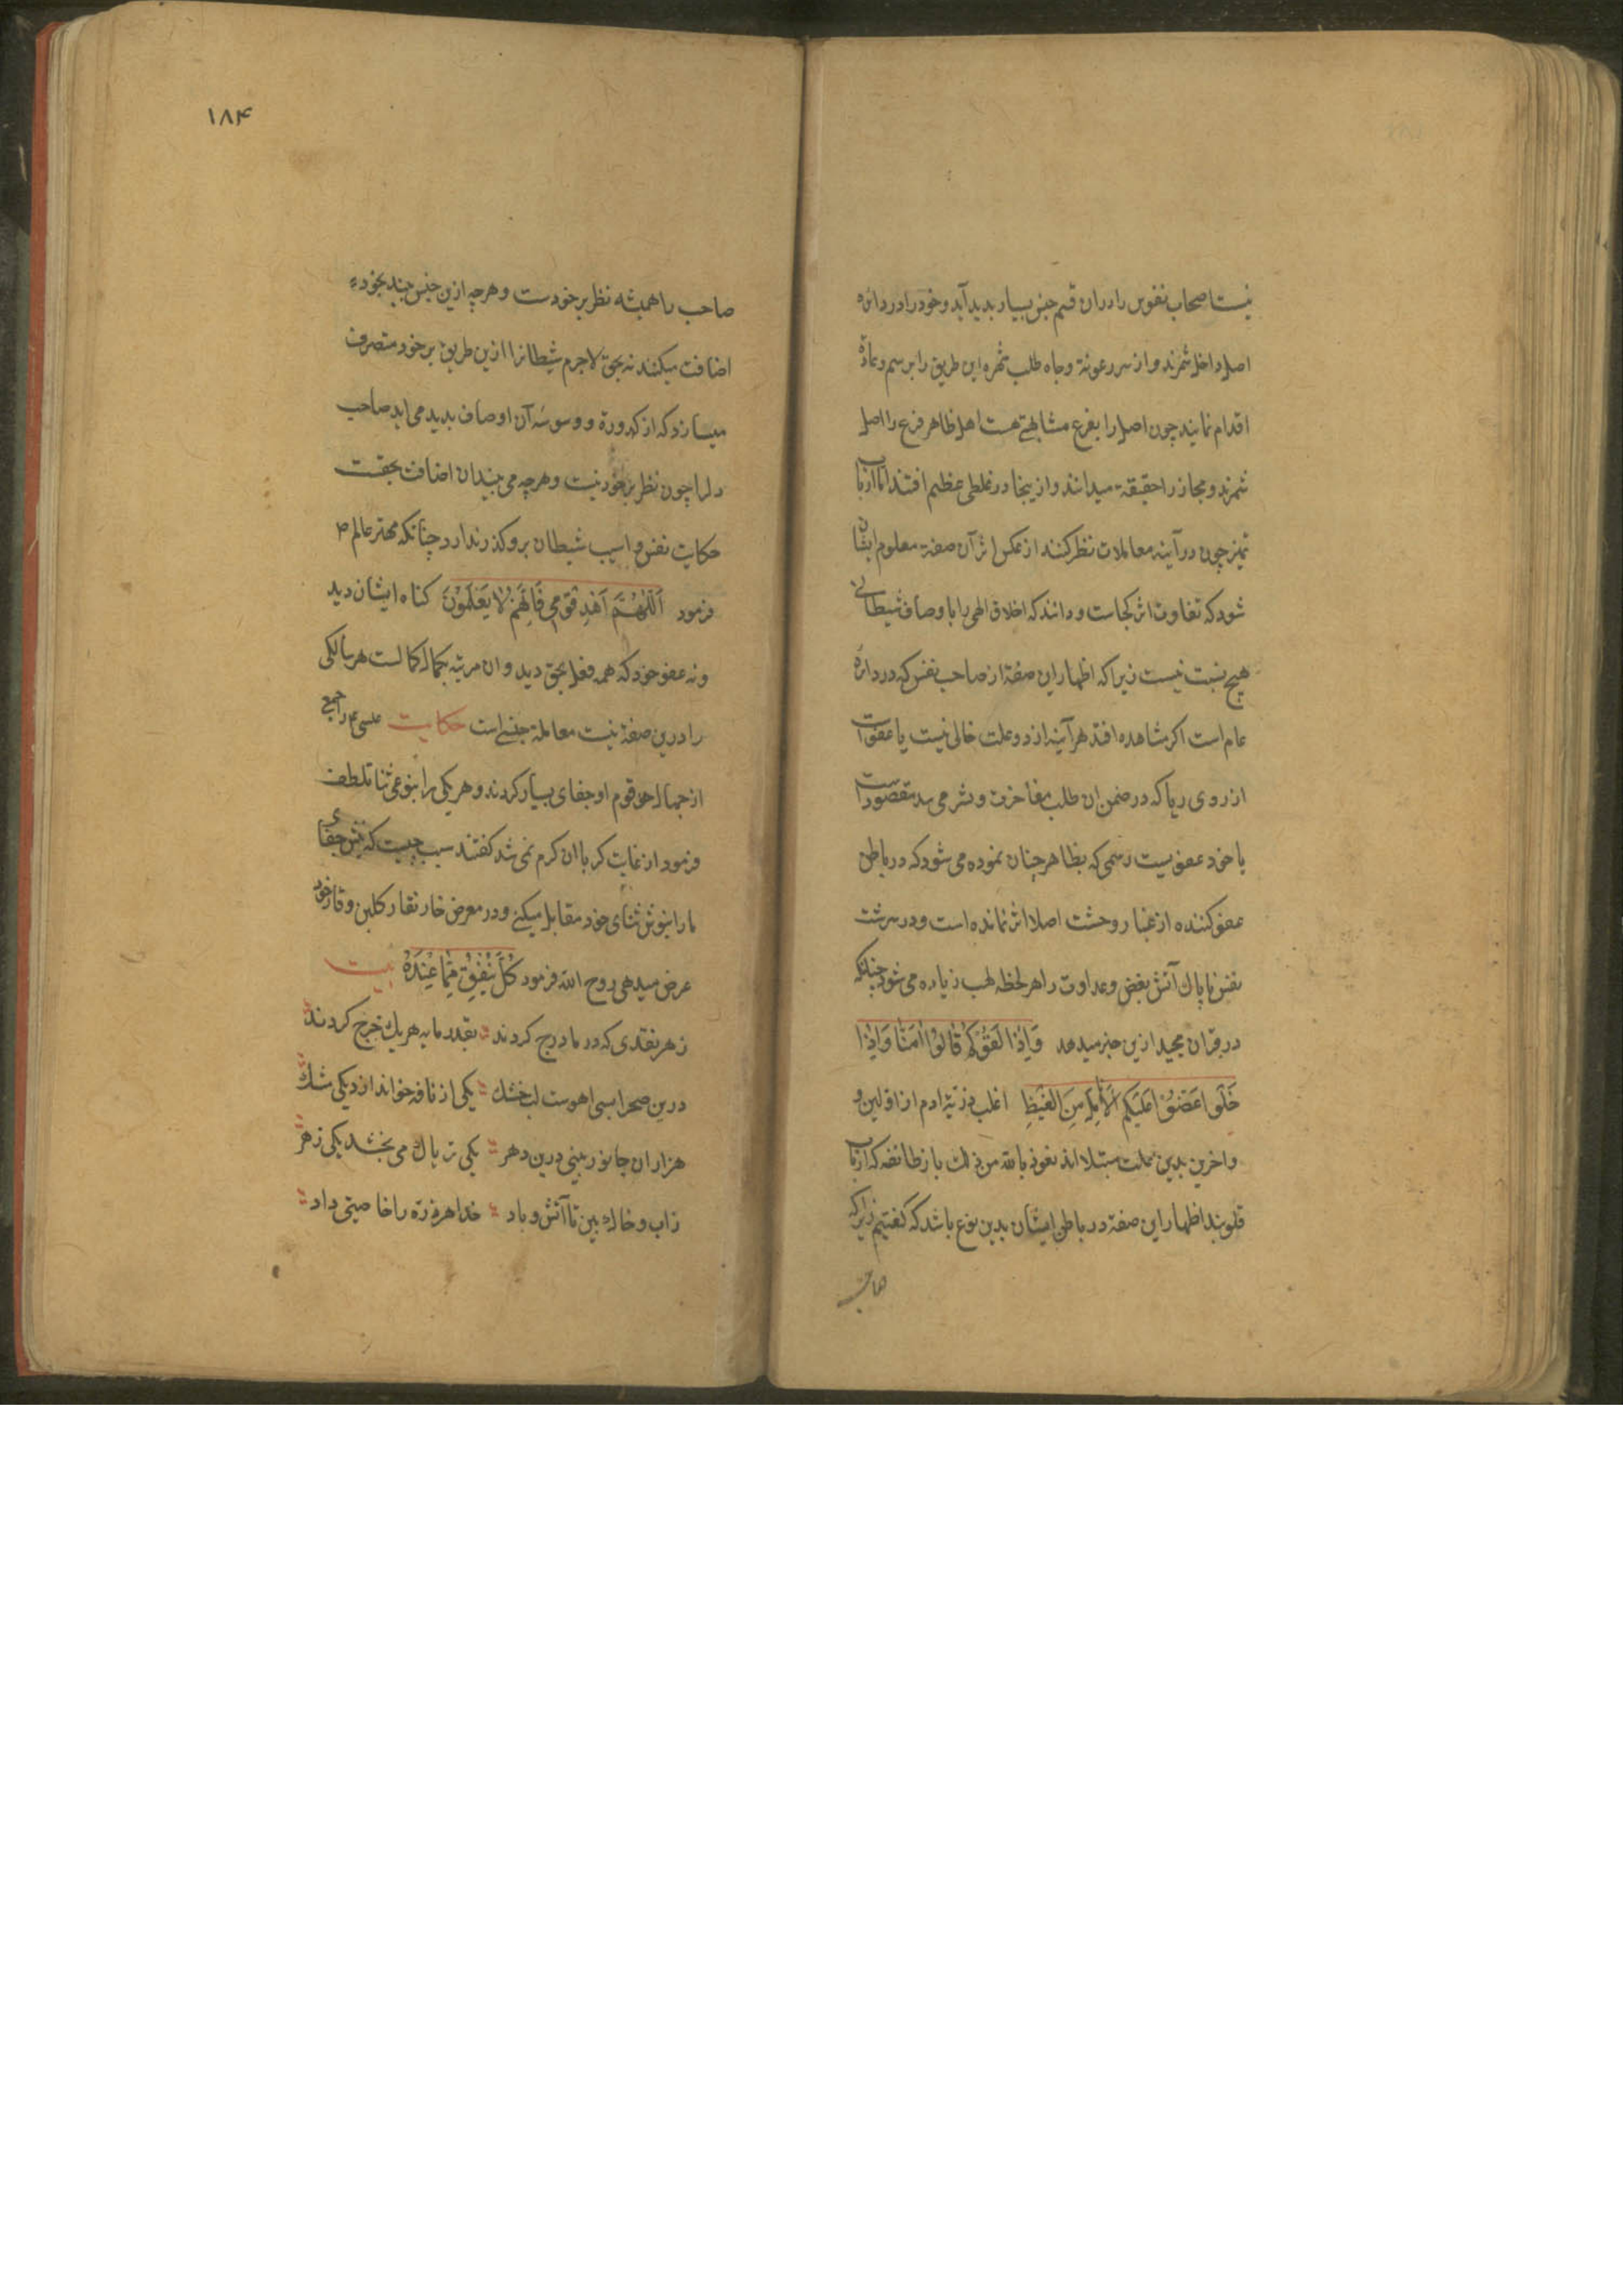 نیست اصحاب نفوس را دران قسم جنس بسیار بدید آید و خود را در دائره
اصل داخل شمرند و از سر رعونة و جاه طلب ثمره این طریق را برسم و عادة
اقدام نمایند چون اصل را بفرع مشابهتی هست اهل ظاهر فرع را اصل
شمرند و مجاز را حقیقة میدانند و ازینجا در غلطی عظیم افتند اما ارباب
تمیز چون در آینه معاملات نظر کنند از عکس اثر آن صفة معلوم ایشان
شود که تفاوت اثر کجاست و دانند که اخلاق الهی را با وصاف شیطانی
هیچ نسبت نیست زیرا که اظهار این صفة از صاحب نفس که در دائره
عام است اکر مشاهده افتد هر آینه از دو علت خالی نیست یا عفوست
از روی ریا که در ضمن ان طلب مفاخرت و نشر می مقصودست
یا خود عفویست رسمی که بظاهر چنان نموده می شود که در باطن
عفو کننده از غبار وحشت اصلا اثر نمانده است و در سرشت
نفس ناپاك آتش بغض و عداوت را هر لحظه لهب زیاده می شود چنانکه
در قران مجید ازین خبر میدهد وَاِذَا لَقُوْكُمْ قَالُوْا اٰمَنَّا وَاِذَا
خَلَوْا عَضُّوْا عَلَيْكُمُ الْاَنَامِلَ مِنَ الْغَيْظِ اغلب ذریة ادم از اولین و
و اخرین بدین علت مبتلا اند نعوذ بالله من ذلك باز طائفه که ارباب
قلوبند اظهار این صفة در باطن ایشان بدین نوع باشد که کفتیم زیرا که
صاحب
۱۸۴
صاحب را همیشه نظر بر خودست و هر چه ازین جنس بیند بخود
اضافت میکند نه بحق لاجرم شیطانرا ازین طریق بر خود متصرف
میسازد که از کدورة و وسوسه آن اوصاف بدید می اید صاحب
دلرا چون نظر بر خود نیست و هر چه می بیند ان اضافت بحقست
حکایت نفس و اسیب شیطان برو کذر ندارد چنانکه مهتر عالم ص
فرمود اَللّٰهُمَّ اَهْدِ قَوْمِی فَاِنَّهُمْ لَا يَعْلَمُوْنَ کناه ایشان دید
و نه عفو خود که همه فعل بحق دید و ان مرتبه بکمال کمالست هر سالکی
را درین صفة نیست معاملة جنسی است حکایت عیسی ع م را جمعی
از جهال قوم او جفای بسیار کردند و هر یکی را بنوعی ثنا تلطف
فرمود از غایت کرم با ان کرم نمی شد کفتند سبب چیست که نیش جفای
ما را بنوش ثنای خود مقابل میکنی و در معرض خار نقار کلبن وقار خود
عرض میدهی روح الله فرمود كُلٌّ يُنْفِقُ مِمَّا عِنْدَهُ بیت
ز هر نقدی که در ما درج کردند بقدر مایه هر یك خرج کردند
درین صحرا بسی اهوست لب خشك یکی از نافه خواند از دیکی مشك
هزاران جانور بینی درین دهر یکی تریاك می بخشد یکی زهر
ز اب و خاك بین تا آتش و باد خدا هر ذره را خاصیتی داد